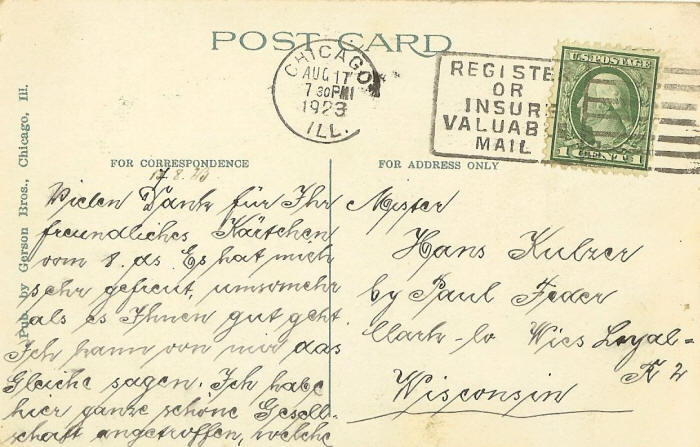 POST CARD
CHICAGO
AUG 17
7 30 PM
1923
ILL.
REGISTE
OR
INSUR
VALUAB
MAIL
U.S. POSTAGE
1 CENT 1
Pub. by Gerson Bros., Chicago, Ill.
FOR CORRESPONDENCE
17.8.23
Vielen Dank für Ihr
freundliches Kärtchen
vom 8. ds. Es hat mich
sehr gefreut, umsomehr
als es Ihnen gut geht.
Ich kann von mir das
Gleiche sagen. Ich habe
hier ganze schöne Gesell-
schaft angetroffen, welche
FOR ADDRESS ONLY
Mister
Hans Kulzer
by Paul Fexer
Clark-Co Wics Loyal-
R 2
Wisconsin